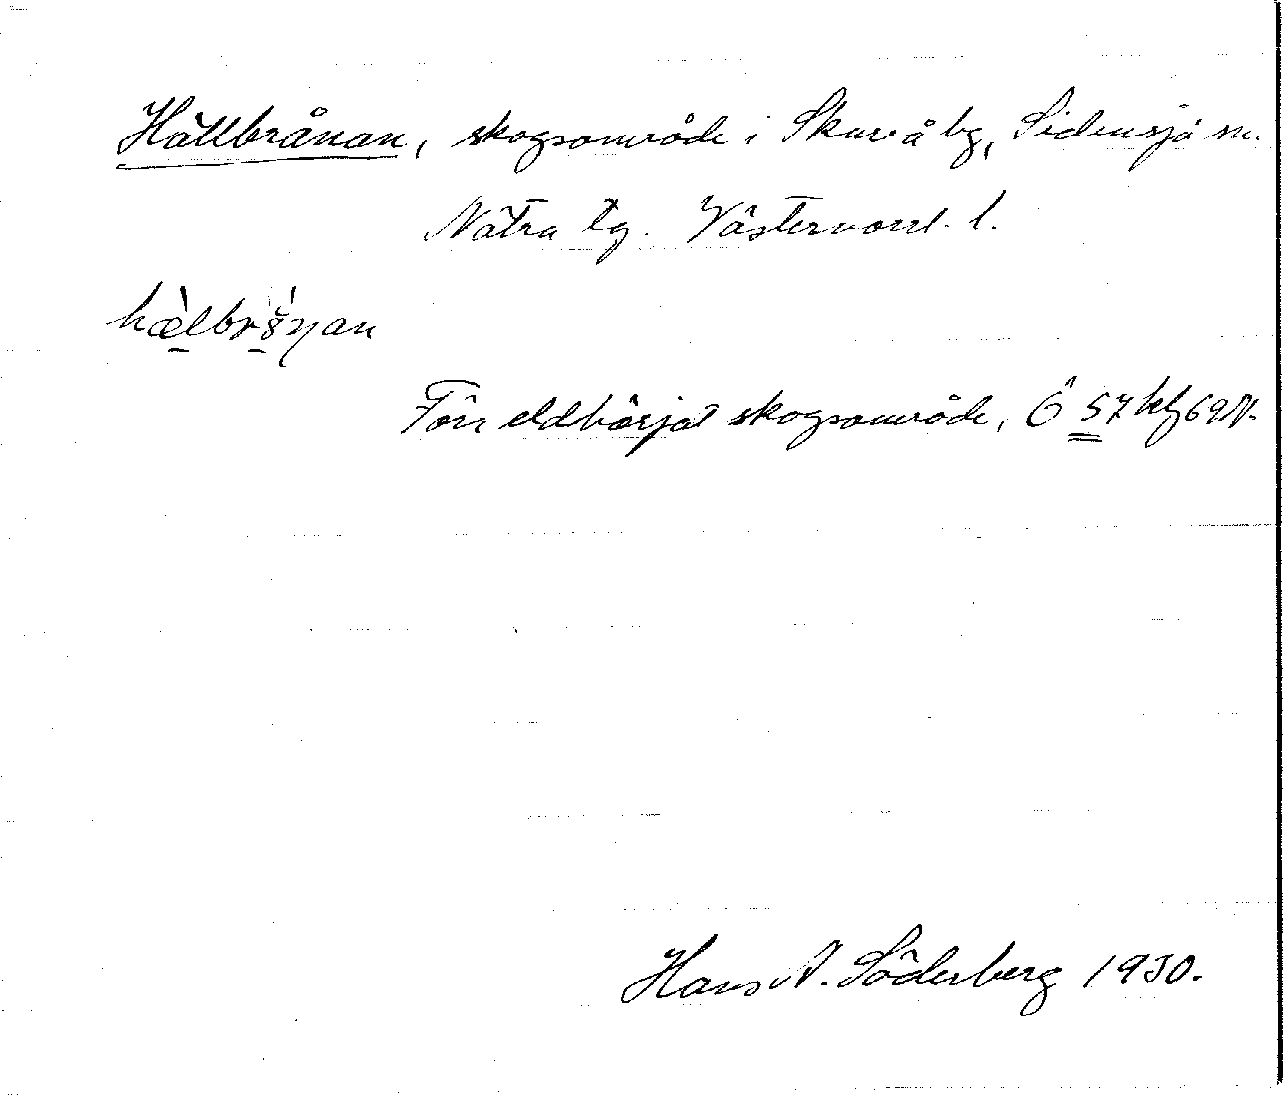 Hällbrånan, skogsområde i Skurå by, Sidensjö sn.
Nätra tg. Västernorrl. l.
Förr eldhärjat skogsområde, Ö 57 kf 69 N.
Hans A. Söderberg 1930.